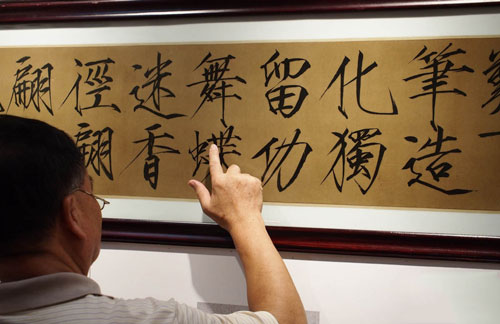 筆造
化獨
留功
舞蝶
迷香
徑翩
翩